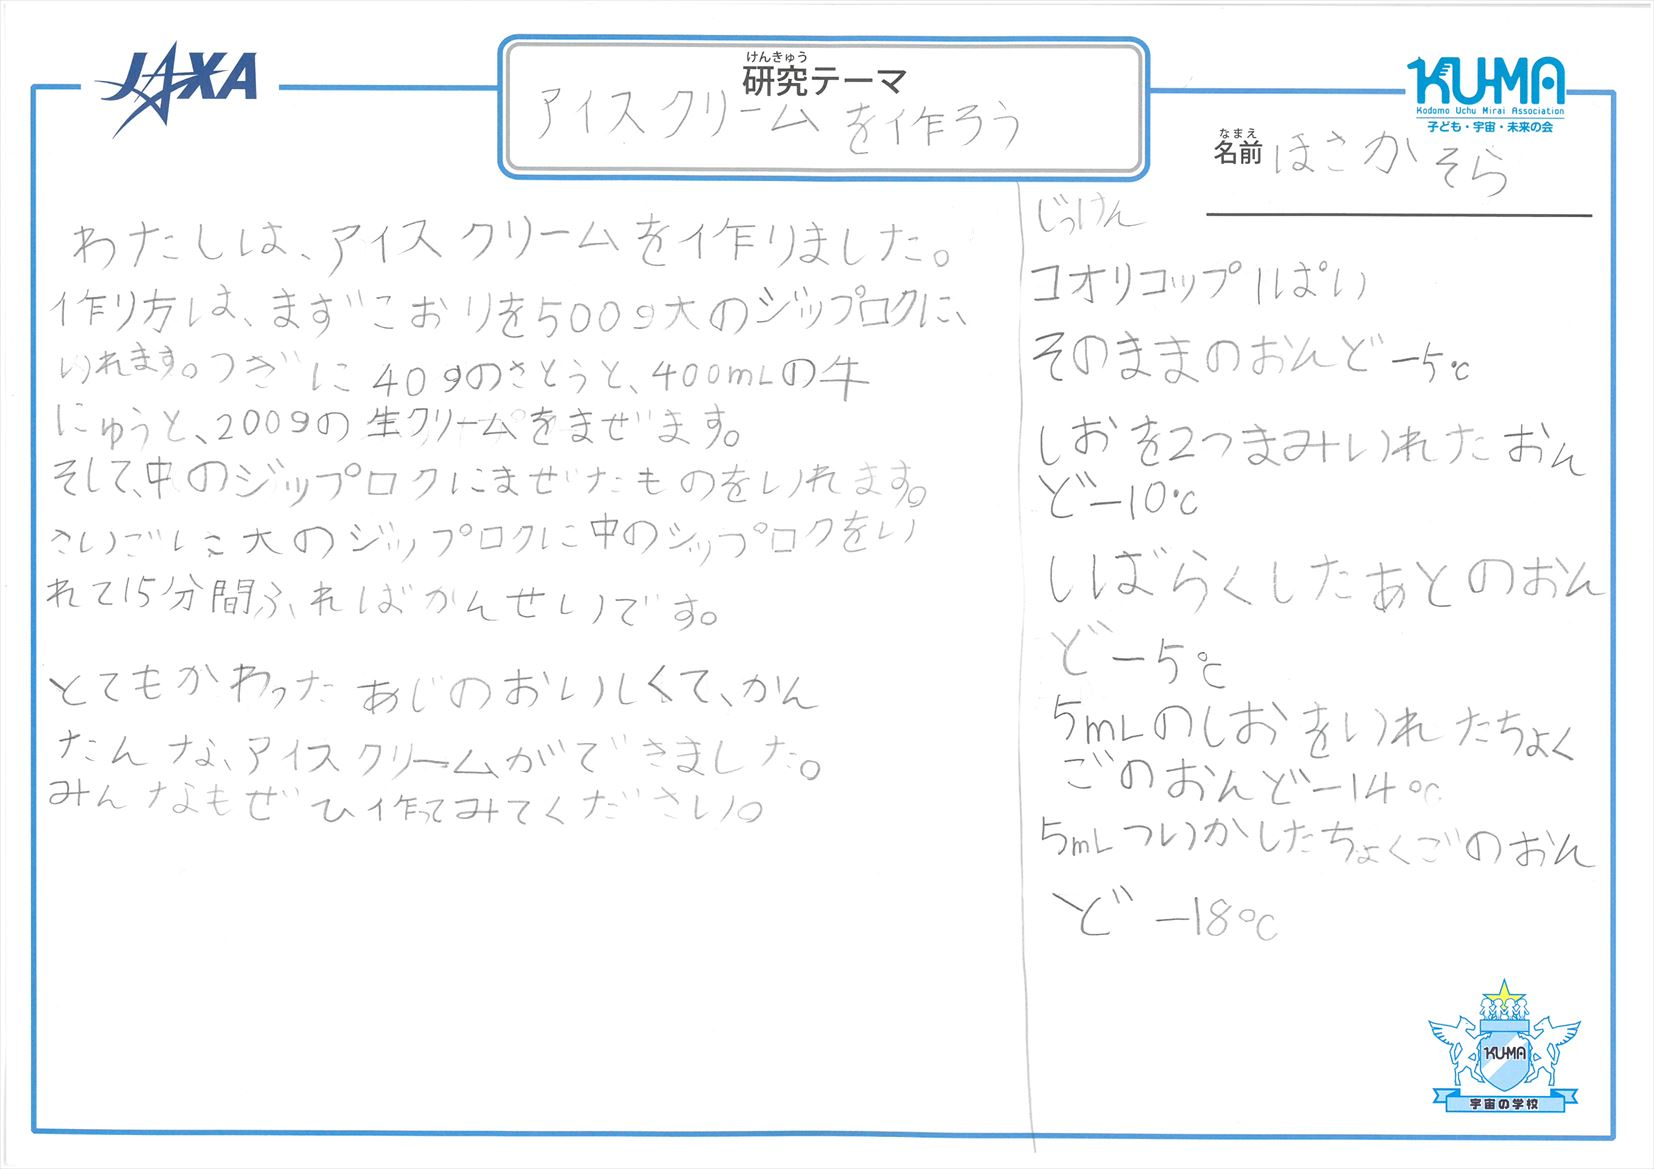 JAXA
けんきゅう
研究テーマ
アイスクリームを作ろう
KU-MA
Kodomo Uchu Mirai Association
子ども・宇宙・未来の会
なまえ
名前 ほさか そら
わたしは、アイスクリームを作りました。
作り方は、まずこおりを500g大のジップロクに、
いれます。つぎに40gのさとうと、400mLの牛
にゅうと、200gの生クリームをまぜます。
そして、中のジップロクにまぜたものをいれます。
さいごに大のジップロクに中のジップロクをい
れて15分間ふればかんせいです。
とてもかわったあじのおいしくて、かん
たんな、アイスクリームができました。
みんなもぜひ作ってみてください。
じっけん
コオリコップ1ぱい
そのままのおんど-5℃
しおを2つまみいれたおん
ど-10℃
しばらくしたあとのおん
ど-5℃
5mLのしおをいれたちょく
ごのおんど-14℃
5mLついかしたちょくごのおん
ど -18℃
KU-MA
宇宙の学校